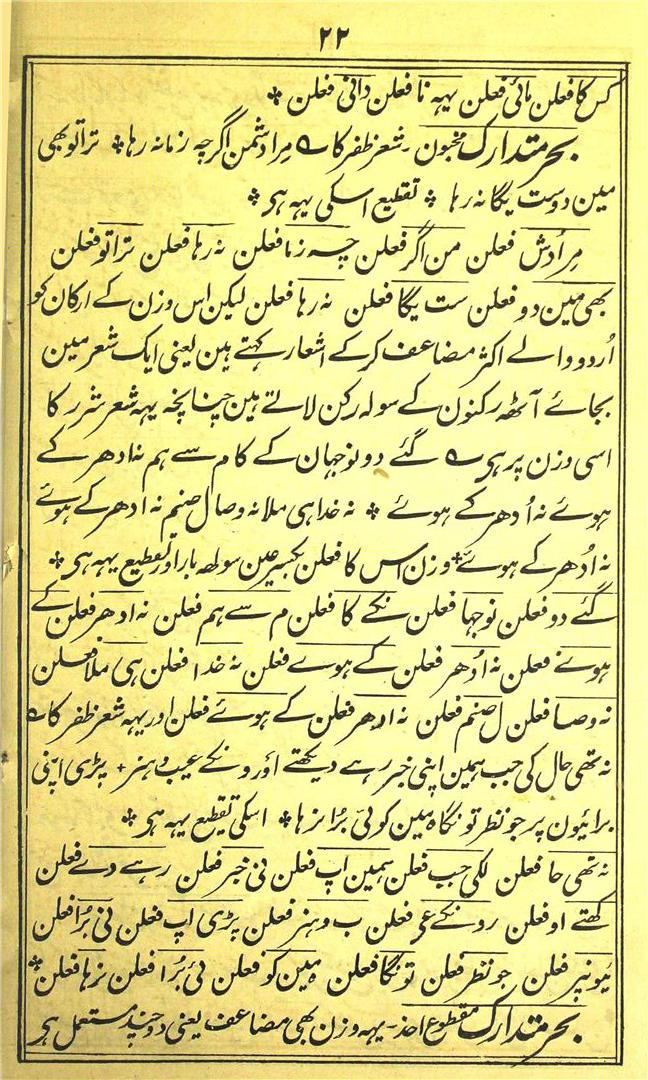 ۲۲
کس کا فعلن مائی فعلن یہہ نا فعلن دانی فعلن *
بحر متدارک مخبون - شعر ظفر کا ؎ مرا دشمن اگرچہ زمانہ رہا * ترا تو بھی
مین دوست یگانہ رہا * تقطیع اسکی یہہ ہی *
مِرا دُش فعلن من اگر فعلن چہ زما فعلن نہ رہا فعلن ترا تو فعلن
بھی مین دو فعلن ست یگا فعلن نہ رہا فعلن لیکن اس وزن کے ارکان کو
اُردو والے اکثر مضاعف کرکے اشعار کہتے ہین یعنی ایک شعر مین
بجائے آٹھہ رکنون کے سولہ رکن لاتے ہین چنانچہ یہہ شعر شرر کا
اسی وزن پر ہی ؎ گئے دونو جہان کے کام سے ہم نہ ادھر کے
ہوئے نہ اُدھر کے ہوئے * نہ خدا ہی ملا نہ وصال صنم نہ ادھر کے ہوئے
نہ اُدھر کے ہوئے * وزن اس کا فعلن بکسر عین سولھہ بار اور تقطیع یہہ ہی *
گئے دو فعلن نو جہا فعلن نکے کا فعلن م سے ہم فعلن نہ ادھر فعلن کے
ہوئے فعلن نہ اُدھر فعلن کے ہوے فعلن نہ خدا فعلن ہی ملا فعلن
نہ وصا فعلن ل صنم فعلن نہ ادھر فعلن کے ہوئے فعلن اور یہہ شعر ظفر کا ؎
نہ تھی حال کی جب ہمین اپنی خبر رہے دیکھتے اورونکے عیب و ہنر * پڑی اپنی
برائیون پر جو نظر تو نگاہ مین کوئی بُرا نرہا * اسکی تقطیع یہہ ہی *
نہ تھی حا فعلن لکی جب فعلن ہمین اپ فعلن نی خبر فعلن رہے دے فعلن
کھتے او فعلن رونکے عی فعلن ب و ہنر فعلن پڑی اپ فعلن نی بُرا فعلن
ئیونپر فعلن جو نظر فعلن تو نگا فعلن ہ مین کو فعلن ئی بُرا فعلن نرہا فعلن *
بحر متدارک مقطوع احذ - یہہ وزن بھی مضاعف یعنی دوچند مستعمل ہی